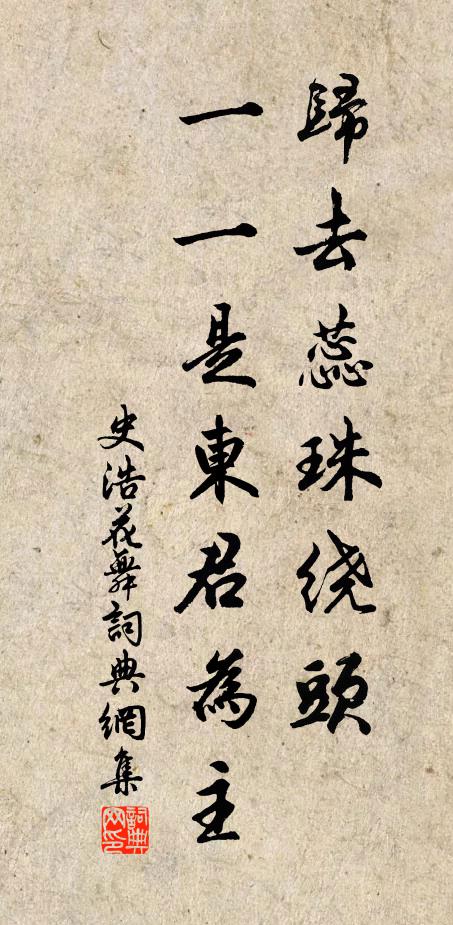 歸去蕊珠绕頭
一一是東君為主
史浩花舞詞典網集
詞典网印